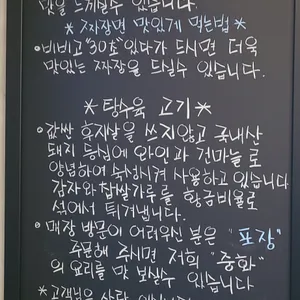 맛을 느끼실수 있습니다.
* 짜장면 맛있게 먹는법 *
• 비비고 "30초" 있다가 드시면 더욱
맛있는 짜장을 드실수 있습니다.
* 탕수육 고기 *
• 값싼 후지살을 쓰지않고 국내산
돼지 등심에 와인과 건마늘로
양념하여 숙성시켜 사용하고 있습니다
감자와 찹쌀가루를 황금비율로
섞어서 튀겨냅니다.
• 매장 방문이 어려우신 분은 "포장"
주문해 주시면 저희 "중화"
의 요리를 맛 보실수 있습니다
* 고객님을